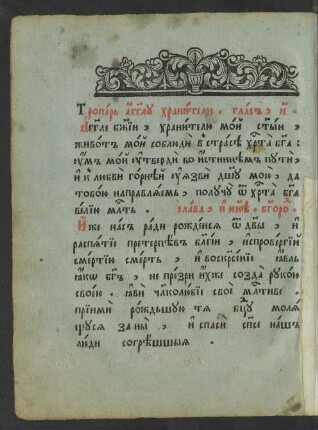 Тропарь а҆́гг҃лꙋ храни́телю . гла́съ , и҃ .
А҆́гг҃ле бж҃їи , храни́телю мо́й ст҃ы́и ,
живо́тъ мо́й соблюдѝ в стра́сѣ хрⷭ҇та̀ бг҃а :
оу҆́мъ мо́й оу҆твердѝ во и҆́стиннемъ пꙋтѝ ,
и҆ к любвѝ го́рнѣй оу҆ѧзвѝ дш҃ꙋ мою̀ , да
тобо́ю направлѧ́емь , полꙋчꙋ̀ ѿ хрⷭ҇та̀ бг҃а
ве́лїю млⷭ҇ть . сла́ва , и҆ ны́нѣ . бг҃оро́
И҆́же на́съ ра́ди рожде́йсѧ ѿ дв҃ы , и҆
распѧ́тїе претерпѣ́въ бл҃гїи , и҆спрове́ргїй
сме́ртїю сме́рть , и҆ воскр҃се́нїе ꙗ҆́вль
ꙗ҆́кѡ бг҃ъ , не пре́зри и҆́хже созда̀ рꙋко́ю
свое́ю . ꙗ҆вѝ чл҃колю́бїе своѐ млⷭ҇тиве .
прїимѝ ро́ждьшꙋю тѧ̀ бц҃ꙋ молѧ́
щꙋсѧ за ны̀ , и҆ спасѝ сп҃се на́шъ
лю́ди согрѣ́шшыѧ .